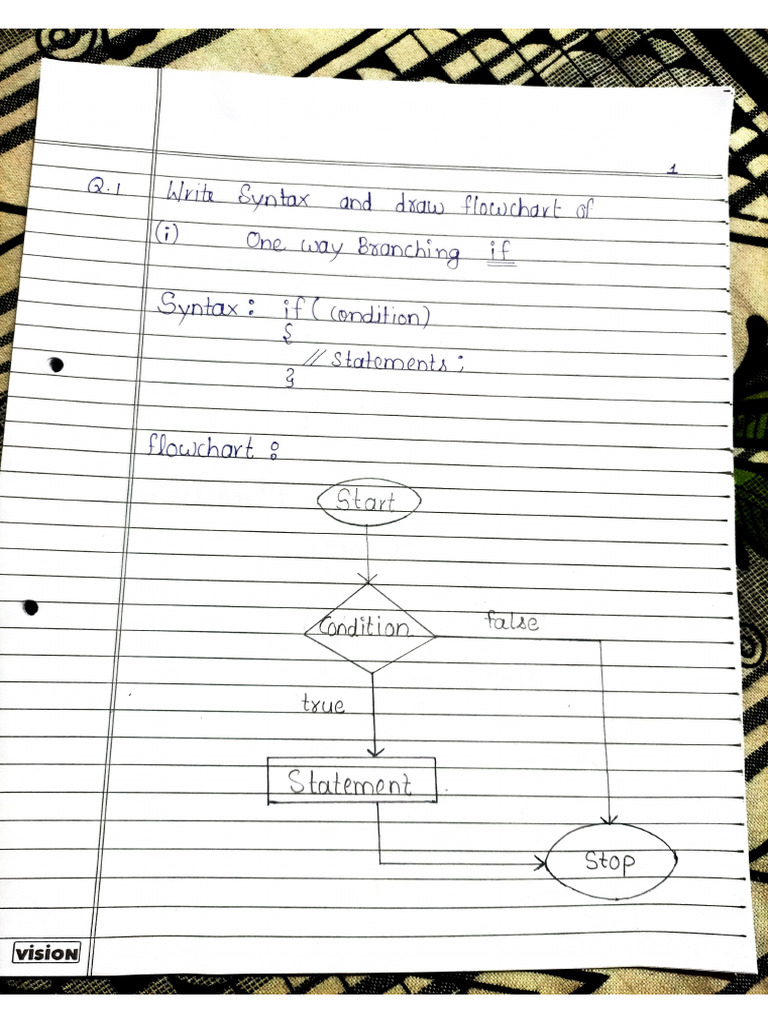 1
Q.1 Write Syntax and draw flowchart of
(i) One way Branching if
Syntax: if (condition)
{
// Statements;
}
flowchart:
Start
Condition
false
true
Statement
Stop
vision